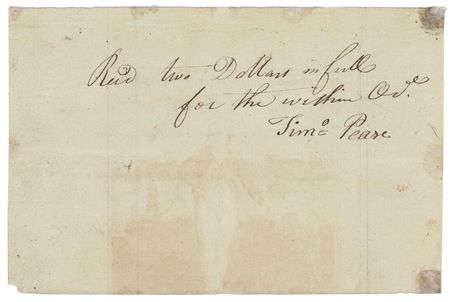 Rec'd two Dollars in full
for the within Ord.
Timo Peare